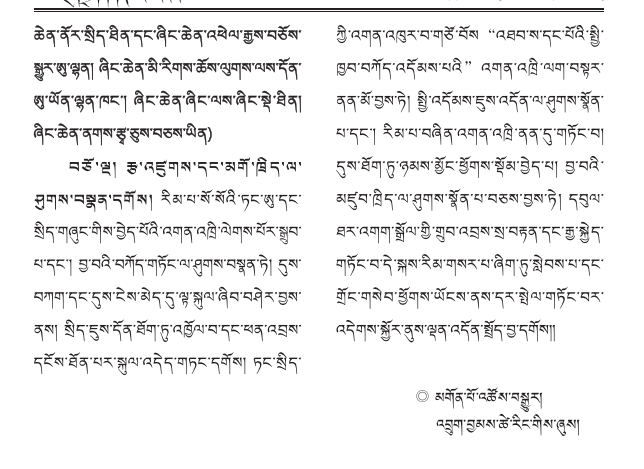 ཆེན་ནོར་སྲིད་ཐིན་དང་ཞིང་ཆེན་འཕེལ་རྒྱས་བཅོས་
སྒྱུར་ཨུ་ལྷན། ཞིང་ཆེན་མི་རིགས་ཆོས་ལུགས་ལས་དོན་
ཨུ་ཡོན་ལྷན་ཁང་། ཞིང་ཆེན་ཞིང་ལས་ཞིང་སྡེ་ཐིན།
ཞིང་ཆེན་ནགས་རྩྭ་ཅུས་བཅས་ཡིན)
བཅོ་ལྔ། རྩ་འཛུགས་དང་མགོ་ཁྲིད་ལ་
ཤུགས་བསྣན་དགོས། རིམ་པ་སོ་སོའི་ཏང་ཨུ་དང་
སྲིད་གཞུང་གིས་བྱེད་པོའི་འགན་འཁྲི་ལེགས་པོར་སྒྲུབ་
པ་དང་། བྱ་བའི་བཀོད་གཏོང་ལ་ཤུགས་བསྣན་ཏེ། དུས་
བཀག་དང་དུས་ངེས་མེད་དུ་ལྟ་སྐུལ་ཞིབ་བཤེར་བྱས་
ནས། སྲིད་ཇུས་དོན་ཐོག་ཏུ་འཁྱོལ་བ་དང་ཕན་འབྲས་
དངོས་ཐོན་པར་སྐུལ་འདེད་གཏང་དགོས། ཏང་སྲིད་
ཀྱི་འགན་འཁུར་བ་གཙོ་བོས “འཐབ་ས་དང་པོའི་སྤྱི་
ཁྱབ་བཀོད་འདོམས་པའི” འགན་འཁྲི་ལག་བསྟར་
ནན་མོ་བྱས་ཏེ། སྤྱི་འདོམས་ཇུས་འདོན་ལ་ཤུགས་སྣོན་
པ་དང་། རིམ་པ་བཞིན་འགན་འཁྲི་ནན་དུ་གཏོང་བ།
དུས་ཐོག་ཏུ་ཉམས་མྱོང་ཕྱོགས་སྡོམ་བྱེད་པ། བྱ་བའི་
མཛུབ་ཁྲིད་ལ་ཤུགས་སྣོན་པ་བཅས་བྱས་ཏེ། དབུལ་
ཐར་འགག་སྒྲོལ་གྱི་གྲུབ་འབྲས་སྲ་བརྟན་དང་རྒྱ་སྐྱེད་
གཏོང་བ་དེ་སྐས་རིམ་གསར་པ་ཞིག་ཏུ་སླེབས་པ་དང་
གྲོང་གསེབ་ཕྱོགས་ཡོངས་ནས་དར་སྤེལ་གཏོང་བར་
འདེགས་སྐྱོར་ནུས་ལྡན་འདོན་སྤྲོད་བྱ་དགོས།།
◎ མགོན་པོ་འཚོས་བསྒྱུར།
འབྲུག་བྱམས་ཚེ་རིང་གིས་ཞུས།